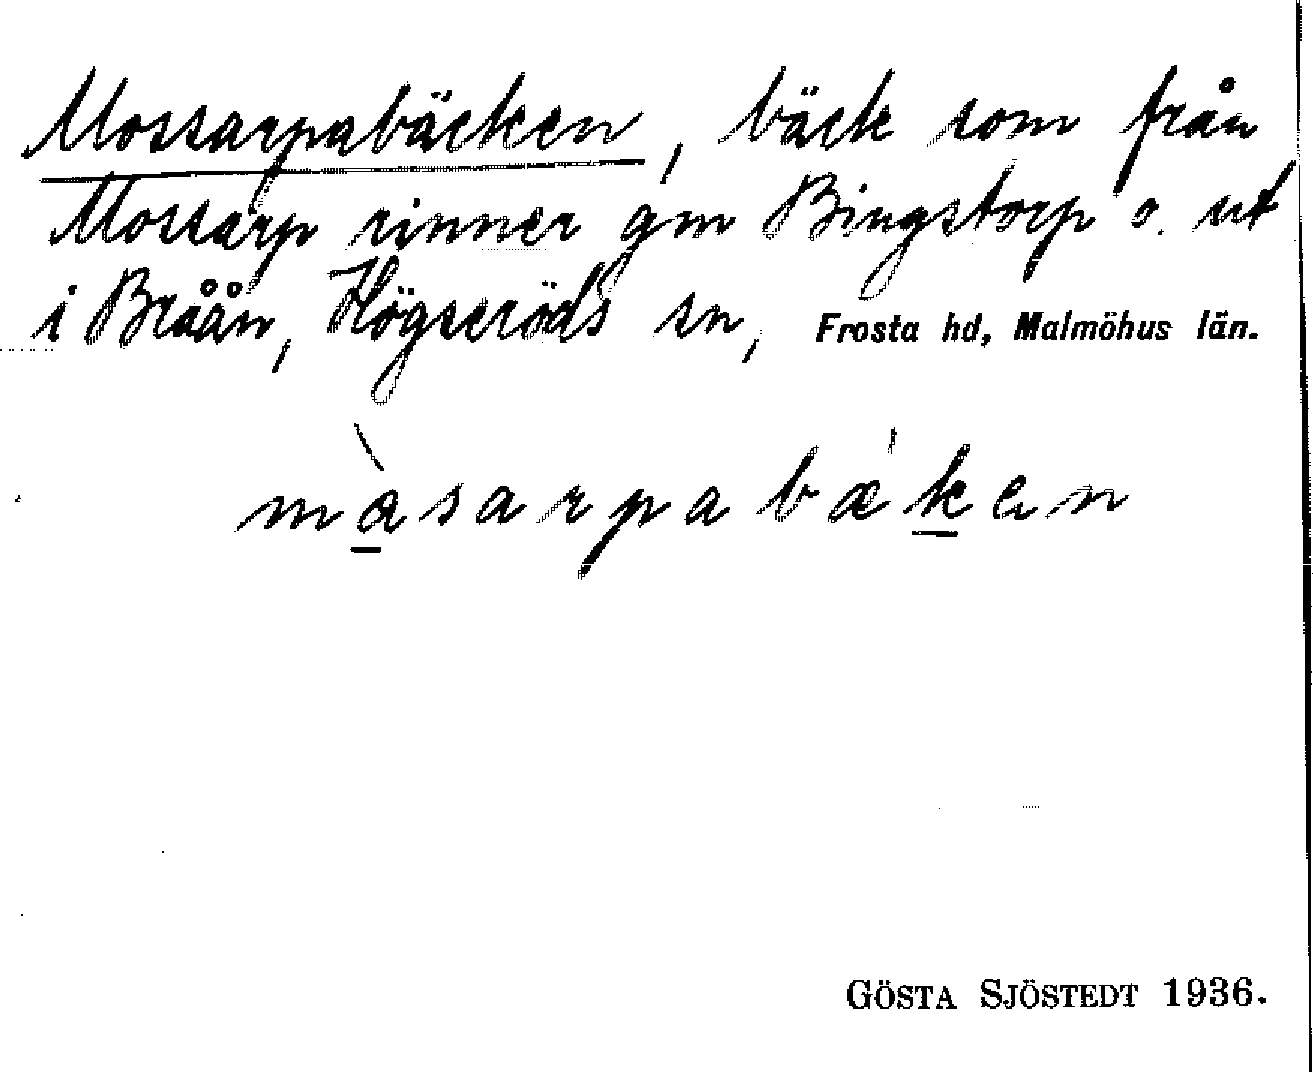 Mossarpabäcken, bäck som från
Mossarp rinner gm Bingstorp o. ut
i Bråån, Högseröds sn, Frosta hd, Malmöhus län.
màsarpabæ'ken
GÖSTA SJÖSTEDT 1936.